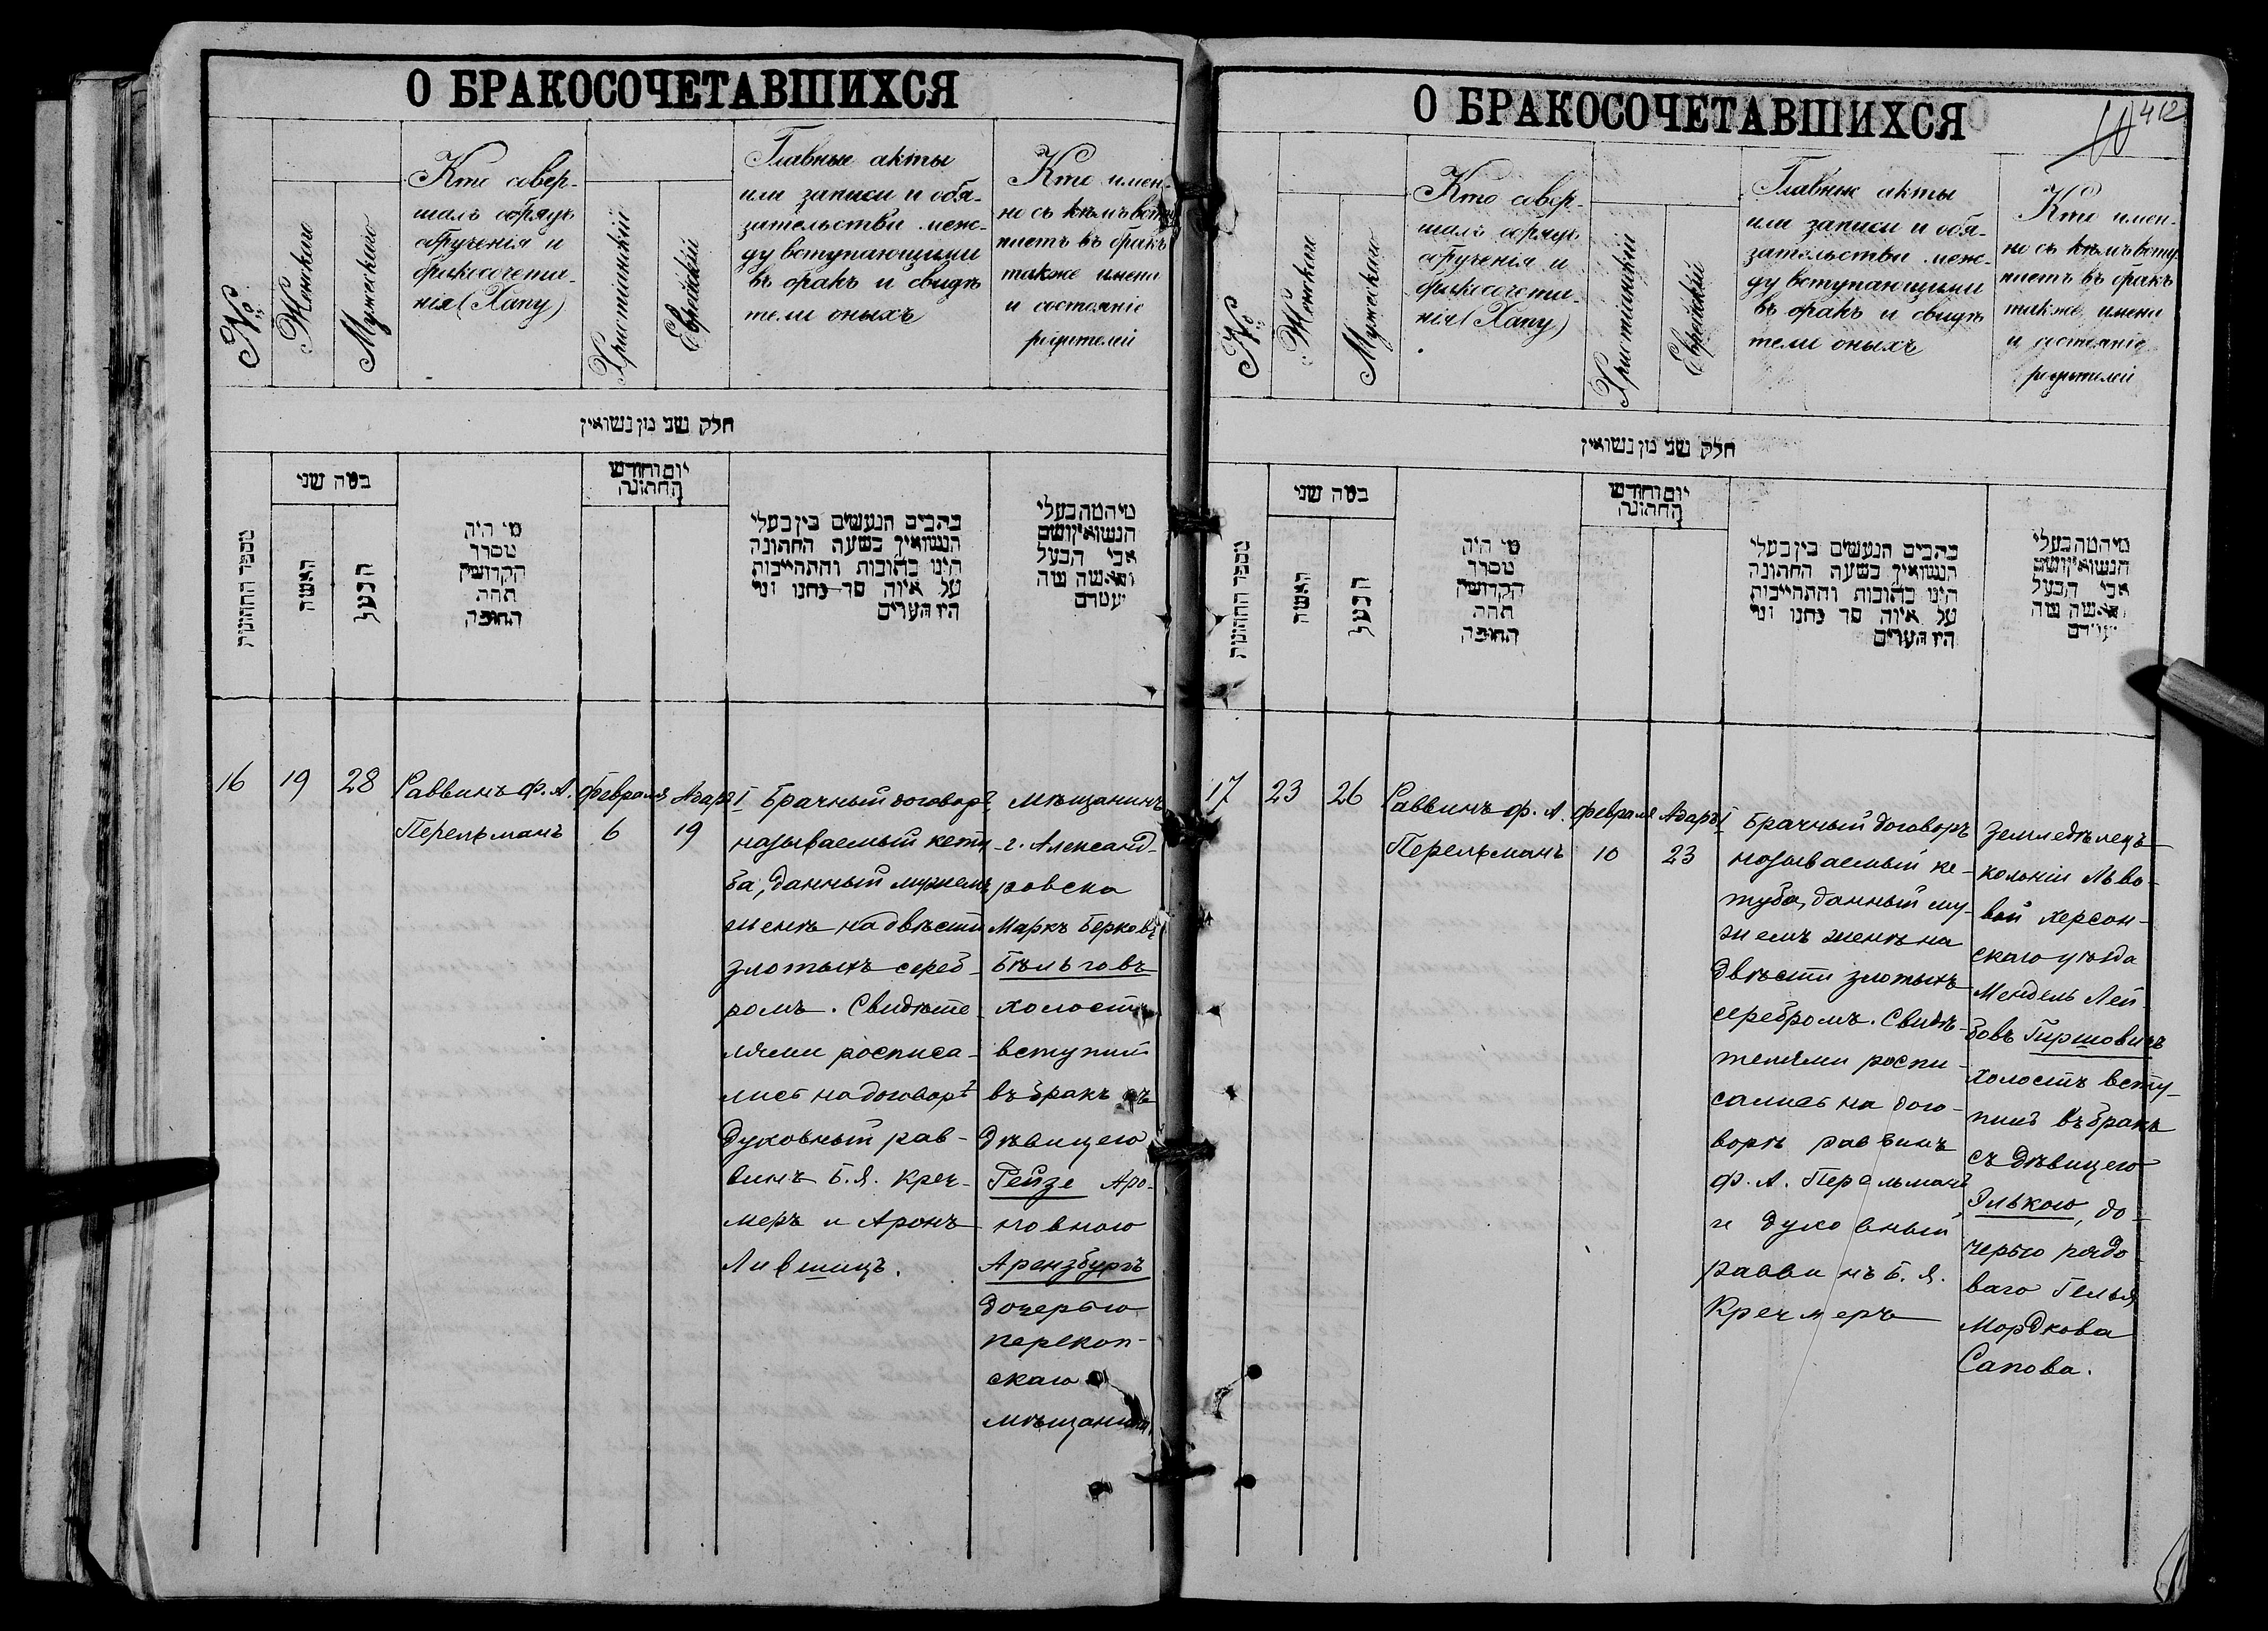 О БРАКОСОЧЕТАВШИХСЯ
№
Женскаго
Мужескаго
Кто совер-
шалъ обрядъ
обрученія и
бракосочета-
нія (Хапу)
Христіанскій
Еврейскій
Главные акты
или записи и обя-
зательства меж-
ду вступающими
въ бракъ и свидѣ
тели оныхъ
Кто имен-
но съ кѣмъ всту
паетъ въ бракъ
также имена
и состояніе
родителей
חלק שני מן נשואין
מספר החתונות
כמה שני
האשה
הבעל
מי היה
מסדר
הקדושין
תחת
החופה
יום וחודש
החתונה
כתבים הנעשים בין בעלי
הנשואין בשעה החתונה
הינו כתובות והתחייבות
על איזה סך נתנו ומי
היו העדים
מיהמה בעלי
הנשואין ושם
אבי הבעל
והאשה מה
מעמדם
16
19
28
Раввинъ Ф. А.
Перельманъ
Февраля
6
Адаръ I
19
Брачный договоръ
называемый кету
ба, данный мужемъ
женѣ на двѣсти
злотыхъ сереб-
ромъ. Свидѣте
лями росписа-
лись на договорѣ
духовный рав-
винъ Б. Я. Креч-
меръ и Аронъ
Лившицъ.
Мѣщанинъ
г. Александ-
ровска
Маркъ Берковъ
Бѣльговъ
холостъ
вступилъ
въ бракъ съ
дѣвицею
Рейзе Аро-
новною
Арензбургъ
дочерью
перекоп-
скаго
мѣщанина
О БРАКОСОЧЕТАВШИХСЯ
412
№
Женскаго
Мужескаго
Кто совер-
шалъ обрядъ
обрученія и
бракосочета-
нія (Хапу)
Христіанскій
Еврейскій
Главные акты
или записи и обя-
зательства меж-
ду вступающими
въ бракъ и свидѣ
тели оныхъ
Кто имен-
но съ кѣмъ всту
паетъ въ бракъ
также имена
и состояніе
родителей
חלק שני מן נשואין
מספר החתונות
כמה שני
האשה
הבעל
מי היה
מסדר
הקדושין
תחת
החופה
יום וחודש
החתונה
כתבים הנעשים בין בעלי
הנשואין בשעה החתונה
הינו כתובות והתחייבות
על איזה סך נתנו ומי
היו העדים
מיהמה בעלי
הנשואין ושם
אבי הבעל
והאשה מה
מעמדם
17
23
26
Раввинъ Ф. А.
Перельманъ
Февраля
10
Адаръ I
23
Брачный договоръ
называемый ке-
туба, данный му-
жемъ женѣ на
двѣсти злотыхъ
серебромъ. Свидѣ-
телями роспи-
сались на дого-
ворѣ раввинъ
Ф. А. Перельманъ
и духовный
раввинъ Б. Я.
Кречмеръ
Земледѣлецъ
колоніи Льво-
вой Херсон-
скаго уѣзда
Мендель Лей-
бовъ Гиршовичъ
холостъ всту-
пилъ въ бракъ
съ дѣвицею
Элькою, до-
черью рядо
ваго Гелья
Мордкова
Сапова.